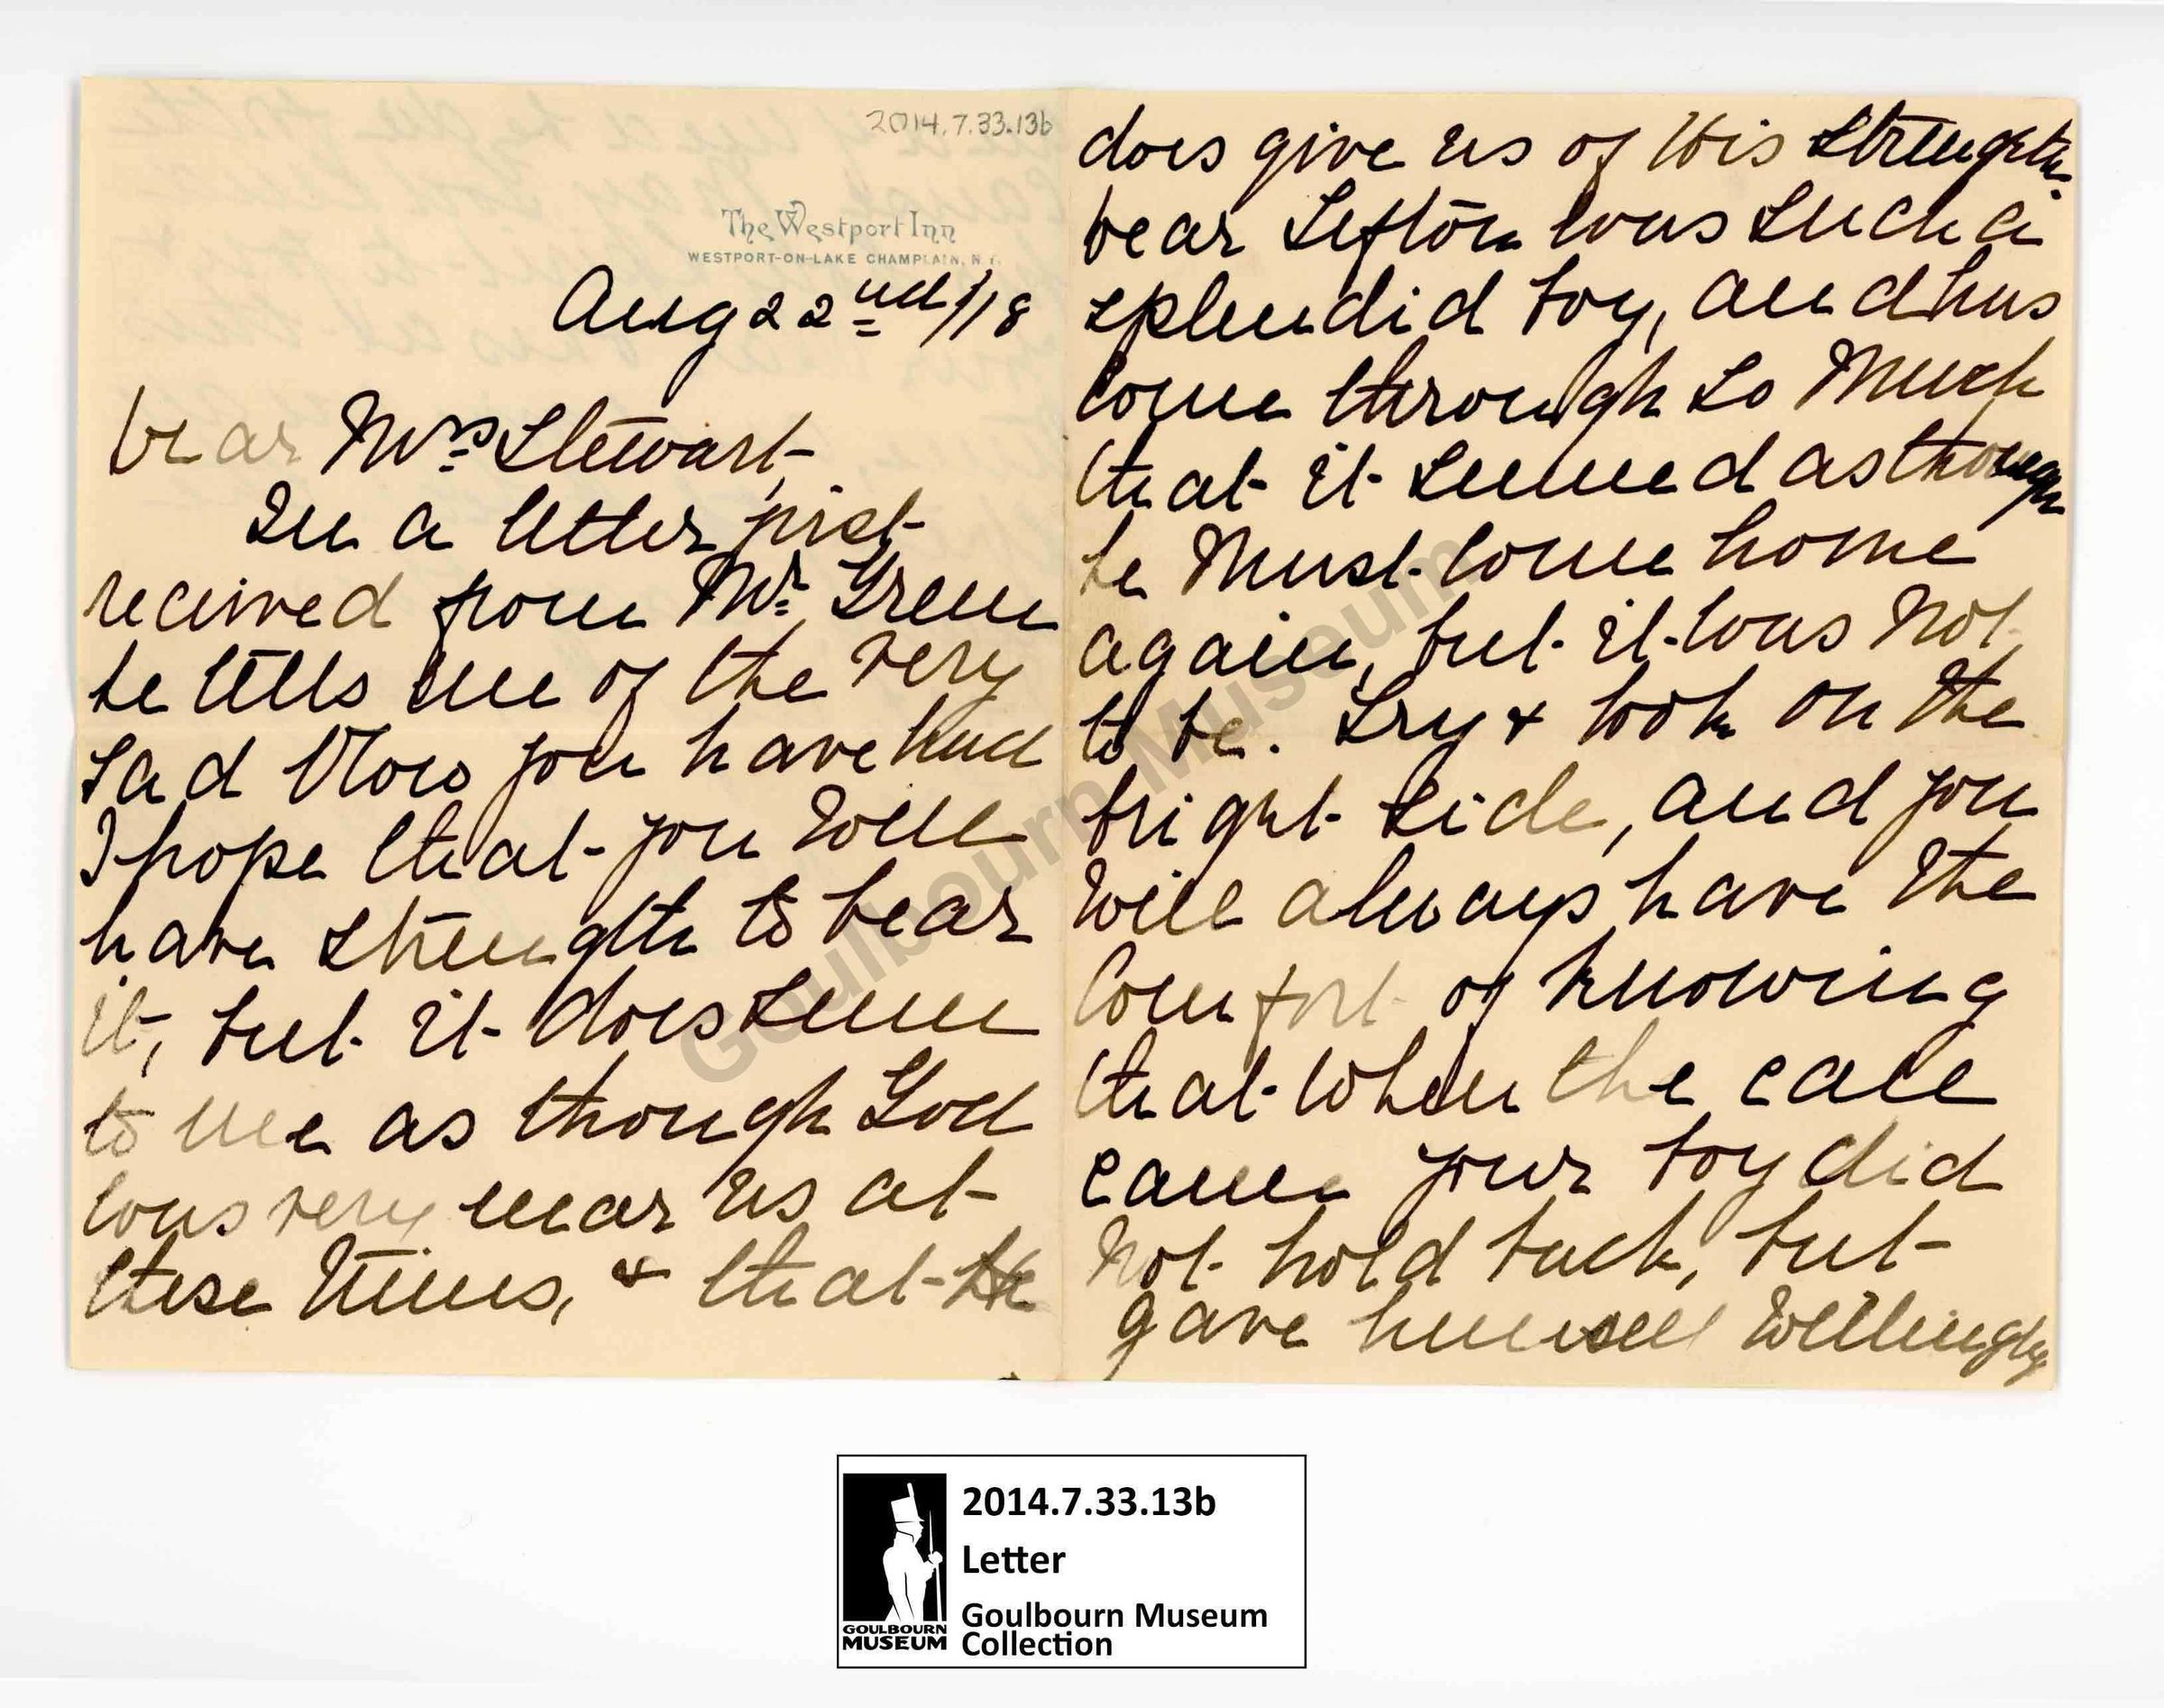 2014.7.33.13b
The Westport Inn
WESTPORT-ON-LAKE CHAMPLAIN, N.Y.
Aug 22nd/18
Dear Mrs Stewart,
In a letter just
received from Mr. Green
he tells me of the very
sad blow you have had
I hope that you will
have strength to bear
it, but it does seem
to me as though God
was very near us at
these times, & that He
does give us of His strength.
Dear Sefton was such a
splendid boy, and has
come through so much
that it seemed as though
he must come home
again, but it was not
to be. Try & look on the
bright side, and you
will always have the
comfort of knowing
that when the call
came your boy did
not hold back, but
gave himself willingly
Goulbourn Museum
2014.7.33.13b
Letter
Goulbourn Museum
Collection
GOULBOURN
MUSEUM